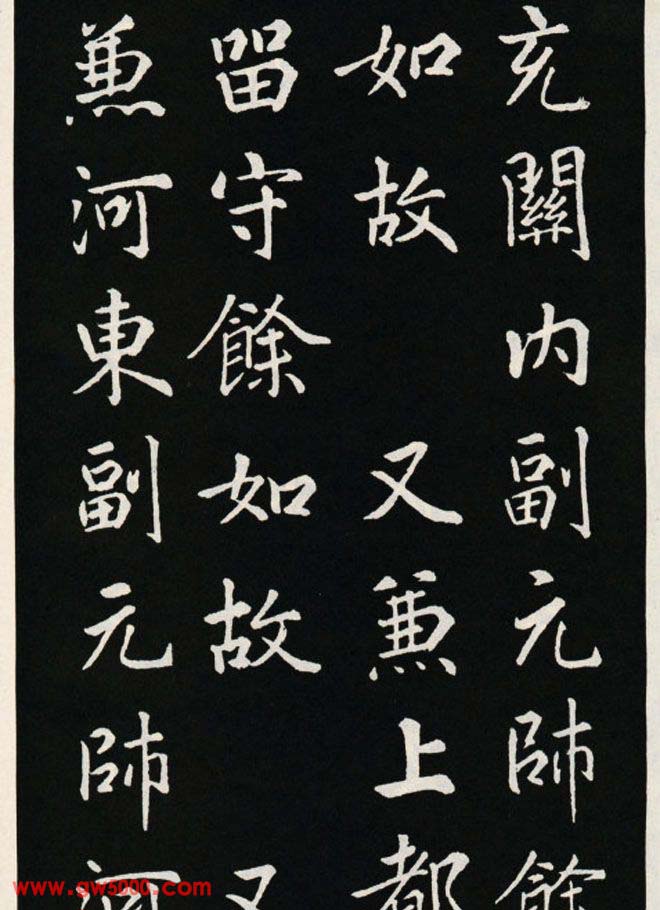 充關內副元帥餘
如故 又兼上都
留守餘如故 又
兼河東副元帥河
www.gw5000.com